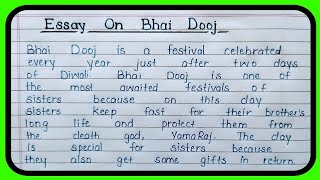 Essay On Bhai Dooj
Bhai Dooj is a festival celebrated
every year just after two days
of Diwali. Bhai Dooj is one of
the most awaited festivals of
sisters because on this day
sisters keep fast for their brother's
long life and protect them from
the death god, Yama Raj. The day
is special for sisters because
they also get some gifts in return